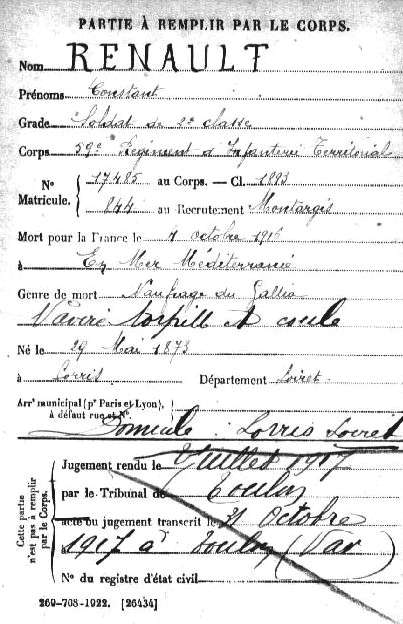 PARTIE À REMPLIR PAR LE CORPS.
Nom RENAULT
Prénoms Constant
Grade Soldat de 2e classe
Corps 59e Régiment d'Infanterie Territorial
N° Matricule. { 17485 au Corps. — Cl. 1893
844 au Recrutement Montargis
Mort pour la France le 4 octobre 1916
à En Mer Méditerranée
Genre de mort Naufrage du Gallia
Navire torpillé et coulé
Né le 29 Mai 1873
à Lorris Département Loiret
Arrt municipal (pr Paris et Lyon), à défaut rue et N°.
Domicile Lorris Loiret
Cette partie n'est pas à remplir par le Corps.
Jugement rendu le Juillet 1917
par le Tribunal de Toulon
acte ou jugement transcrit le 31 Octobre
1917 à Toulon (Var)
N° du registre d'état civil
269-708-1922. [26434]